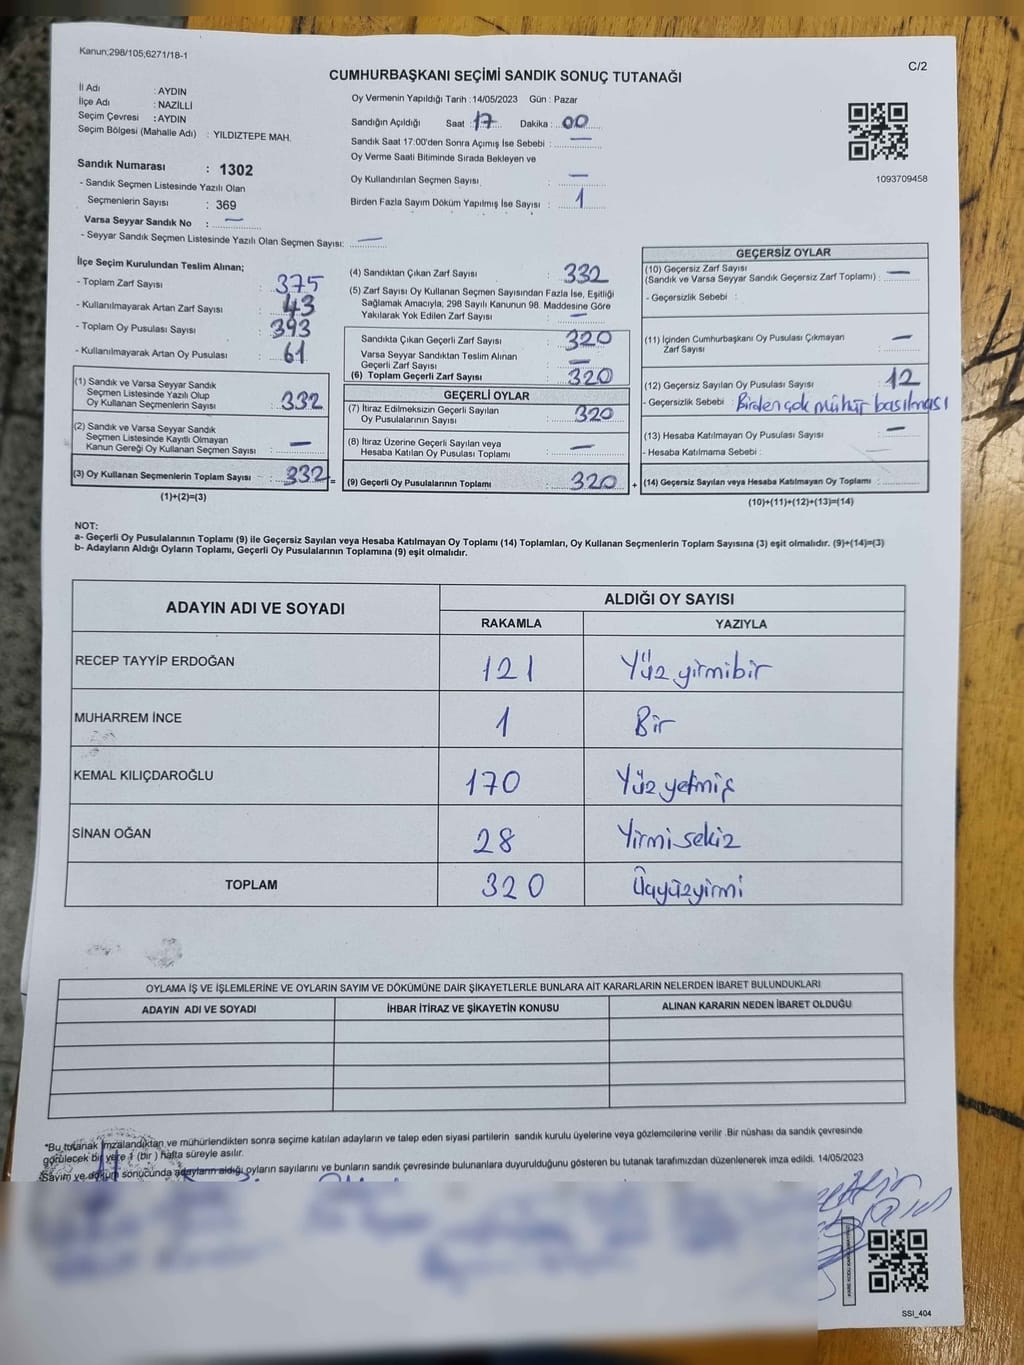 Kanun;298/105;6271/18-1
C/2
CUMHURBAŞKANI SEÇİMİ SANDIK SONUÇ TUTANAĞI
İl Adı : AYDIN
İlçe Adı : NAZİLLİ
Seçim Çevresi : AYDIN
Seçim Bölgesi (Mahalle Adı) : YILDIZTEPE MAH.
Sandık Numarası : 1302
- Sandık Seçmen Listesinde Yazılı Olan
Seçmenlerin Sayısı : 369
Varsa Seyyar Sandık No : —
- Seyyar Sandık Seçmen Listesinde Yazılı Olan Seçmen Sayısı: —
Oy Vermenin Yapıldığı Tarih : 14/05/2023 Gün : Pazar
Sandığın Açıldığı Saat : 17 Dakika : 00
Sandık Saat 17:00'den Sonra Açımış İse Sebebi : —
Oy Verme Saati Bitiminde Sırada Bekleyen ve
Oy Kullandırılan Seçmen Sayısı : —
Birden Fazla Sayım Döküm Yapılmış İse Sayısı : 1
1093709458
İlçe Seçim Kurulundan Teslim Alınan;
- Toplam Zarf Sayısı : 375
- Kullanılmayarak Artan Zarf Sayısı : 43
- Toplam Oy Pusulası Sayısı : 393
- Kullanılmayarak Artan Oy Pusulası : 61
(1) Sandık ve Varsa Seyyar Sandık
Seçmen Listesinde Yazılı Olup
Oy Kullanan Seçmenlerin Sayısı : 332
(2) Sandık ve Varsa Seyyar Sandık
Seçmen Listesinde Kayıtlı Olmayan
Kanun Gereği Oy Kullanan Seçmen Sayısı : —
(3) Oy Kullanan Seçmenlerin Toplam Sayısı : 332 =
(1)+(2)=(3)
(4) Sandıktan Çıkan Zarf Sayısı : 332
(5) Zarf Sayısı Oy Kullanan Seçmen Sayısından Fazla İse, Eşitliği
Sağlamak Amacıyla; 298 Sayılı Kanunun 98. Maddesine Göre
Yakılarak Yok Edilen Zarf Sayısı : —
Sandıkta Çıkan Geçerli Zarf Sayısı : 320
Varsa Seyyar Sandıktan Teslim Alınan
Geçerli Zarf Sayısı : —
(6) Toplam Geçerli Zarf Sayısı : 320
GEÇERLİ OYLAR
(7) İtiraz Edilmeksizin Geçerli Sayılan
Oy Pusulalarının Sayısı : 320
(8) İtiraz Üzerine Geçerli Sayılan veya
Hesaba Katılan Oy Pusulası Toplamı : —
(9) Geçerli Oy Pusulalarının Toplamı : 320 +
GEÇERSİZ OYLAR
(10) Geçersiz Zarf Sayısı
(Sandık ve Varsa Seyyar Sandık Geçersiz Zarf Toplamı) : —
- Geçersizlik Sebebi :
(11) İçinden Cumhurbaşkanı Oy Pusulası Çıkmayan
Zarf Sayısı : —
(12) Geçersiz Sayılan Oy Pusulası Sayısı : 12
- Geçersizlik Sebebi : Birden çok mühür basılması
(13) Hesaba Katılmayan Oy Pusulası Sayısı : —
- Hesaba Katılmama Sebebi :
(14) Geçersiz Sayılan veya Hesaba Katılmayan Oy Toplamı :
(10)+(11)+(12)+(13)=(14)
NOT:
a- Geçerli Oy Pusulalarının Toplamı (9) ile Geçersiz Sayılan veya Hesaba Katılmayan Oy Toplamı (14) Toplamları, Oy Kullanan Seçmenlerin Toplam Sayısına (3) eşit olmalıdır. (9)+(14)=(3)
b- Adayların Aldığı Oyların Toplamı, Geçerli Oy Pusulalarının Toplamına (9) eşit olmalıdır.
ADAYIN ADI VE SOYADI
ALDIĞI OY SAYISI
RAKAMLA YAZIYLA
RECEP TAYYİP ERDOĞAN 121 Yüz yirmibir
MUHARREM İNCE 1 Bir
KEMAL KILIÇDAROĞLU 170 Yüz yetmiş
SİNAN OĞAN 28 Yirmi sekiz
TOPLAM 320 Üçyüzyirmi
OYLAMA İŞ VE İŞLEMLERİNE VE OYLARIN SAYIM VE DÖKÜMÜNE DAİR ŞİKAYETLERLE BUNLARA AİT KARARLARIN NELERDEN İBARET BULUNDUKLARI
ADAYIN ADI VE SOYADI İHBAR İTİRAZ VE ŞİKAYETİN KONUSU ALINAN KARARIN NEDEN İBARET OLDUĞU
*Bu tutanak imzalandıktan ve mühürlendikten sonra seçime katılan adayların ve talep eden siyasi partilerin sandık kurulu üyelerine veya gözlemcilerine verilir .Bir nüshası da sandık çevresinde
görülecek bir yere 1 (bir ) hafta süreyle asılır.
Sayım ve döküm sonucunda adayların aldığı oyların sayılarını ve bunların sandık çevresinde bulunanlara duyurulduğunu gösteren bu tutanak tarafımızdan düzenlenerek imza edildi. 14/05/2023
SSI_404